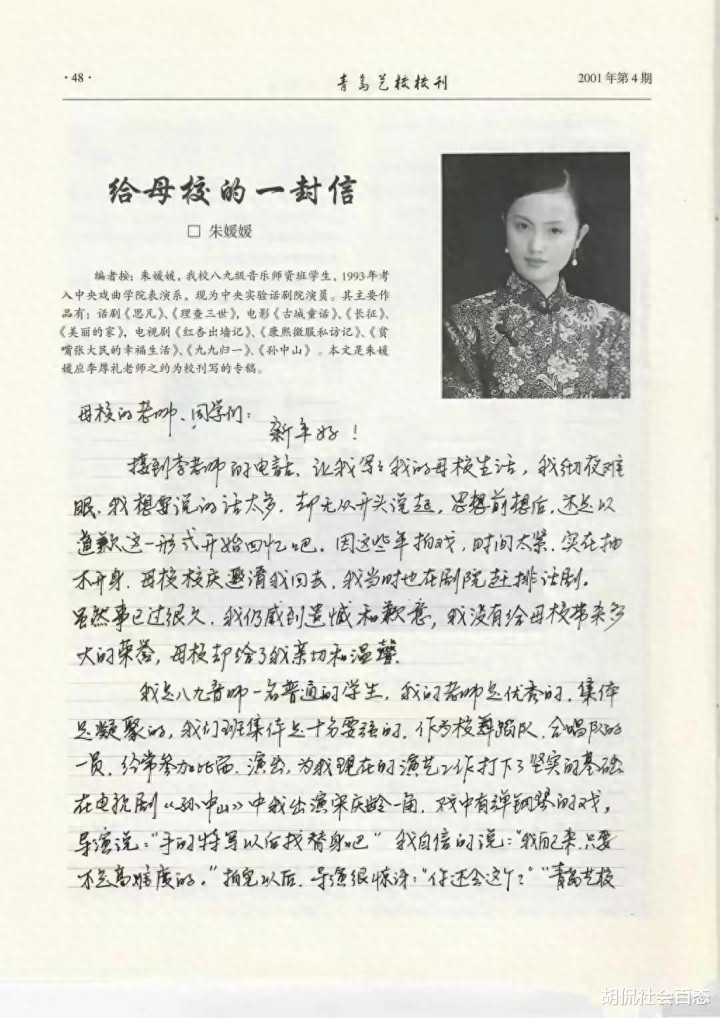 ·48·
青岛艺校校刊
2001年第4期
给母校的一封信
□ 朱媛媛
编者按：朱媛媛，我校八九级音乐师资班学生，1993年考
入中央戏曲学院表演系，现为中央实验话剧院演员。其主要作
品有：话剧《思凡》、《理查三世》，电影《古城童话》、《长征》、
《美丽的家》，电视剧《红杏出墙记》、《康熙微服私访记》、《贫
嘴张大民的幸福生活》、《九九归一》、《孙中山》。本文是朱媛
媛应李厚礼老师之约为校刊写的专稿。
母校的老师、同学们：
新年好！
接到李老师的电话，让我写写我的母校生活，我彻夜难
眠，我想要说的话太多，却无从开头说起，思想前想后，还是以
道歉这一形式开始回忆吧。因这些年拍戏，时间太紧，实在抽
不开身，母校校庆邀请我回去，我当时也在剧院赶排话剧。
虽然事已过很久，我仍感到遗憾和歉意，我没有给母校带来多
大的荣誉，母校却给了我亲切和温馨。
我是八九音师一名普通的学生，我的老师是优秀的，集体
是凝聚的，我们班集体是十分要强的，作为校舞蹈队、合唱队的
一员，经常参加比赛、演出，为我现在的演艺工作打下了坚实的基础。
在电视剧《孙中山》中我出演宋庆龄一角，戏中有弹钢琴的戏，
导演说：“手的特写以后找替身吧”我自信的说：“我自己来，只要
不是高难度的。”拍完以后，导演很惊讶：“你还会这个？”“青岛艺校
胡侃社会百态